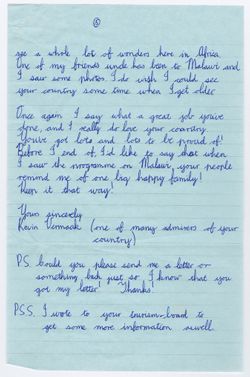 ⑤
see a whole lot of wonders here in Africa.
One of my friends uncle has been to Malawi and
I saw some photos. I do wish I could see
your country some time when I get older.
Once again I say what a great job you've
done, and I really do love your country.
You've got lots and lots to be proud of!
Before I end of, I'd like to say that when
I saw the programme on Malawi, your people
remind me of one big happy family!
Keep it that way!
Yours sincerely
Kevin Vermaack (one of many admirers of your
country)
P.S. Could you please send me a letter or
something back just so I know that you
got my letter! Thanks!
P.S.S. I wrote to your tourism-board to
get some more information aswell.